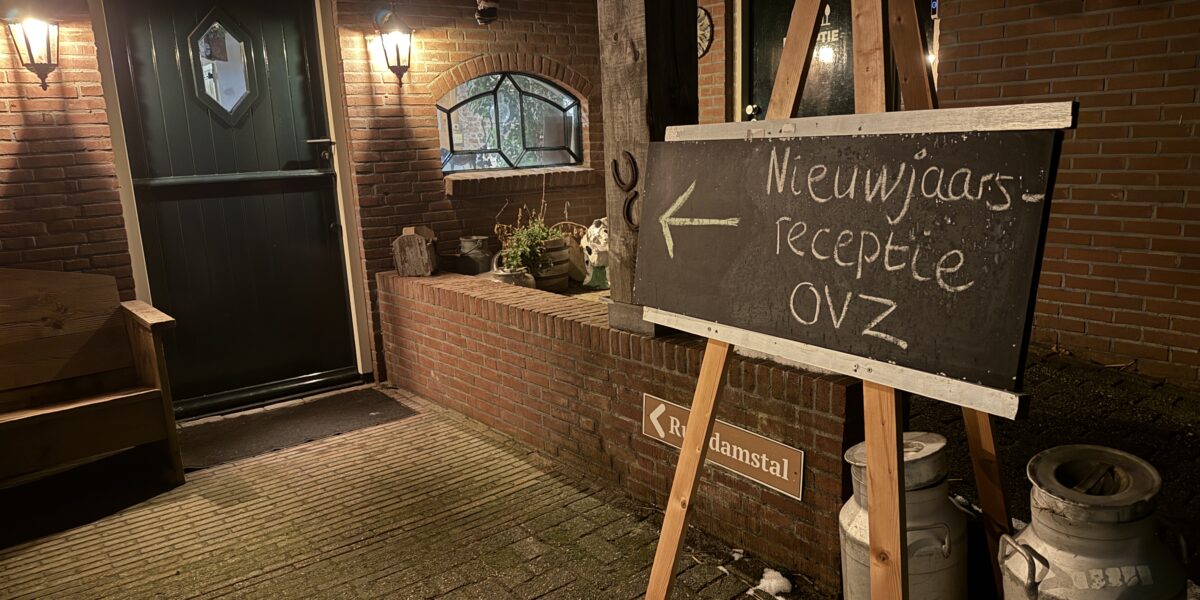 Nieuwjaars-
receptie
OVZ
damstal